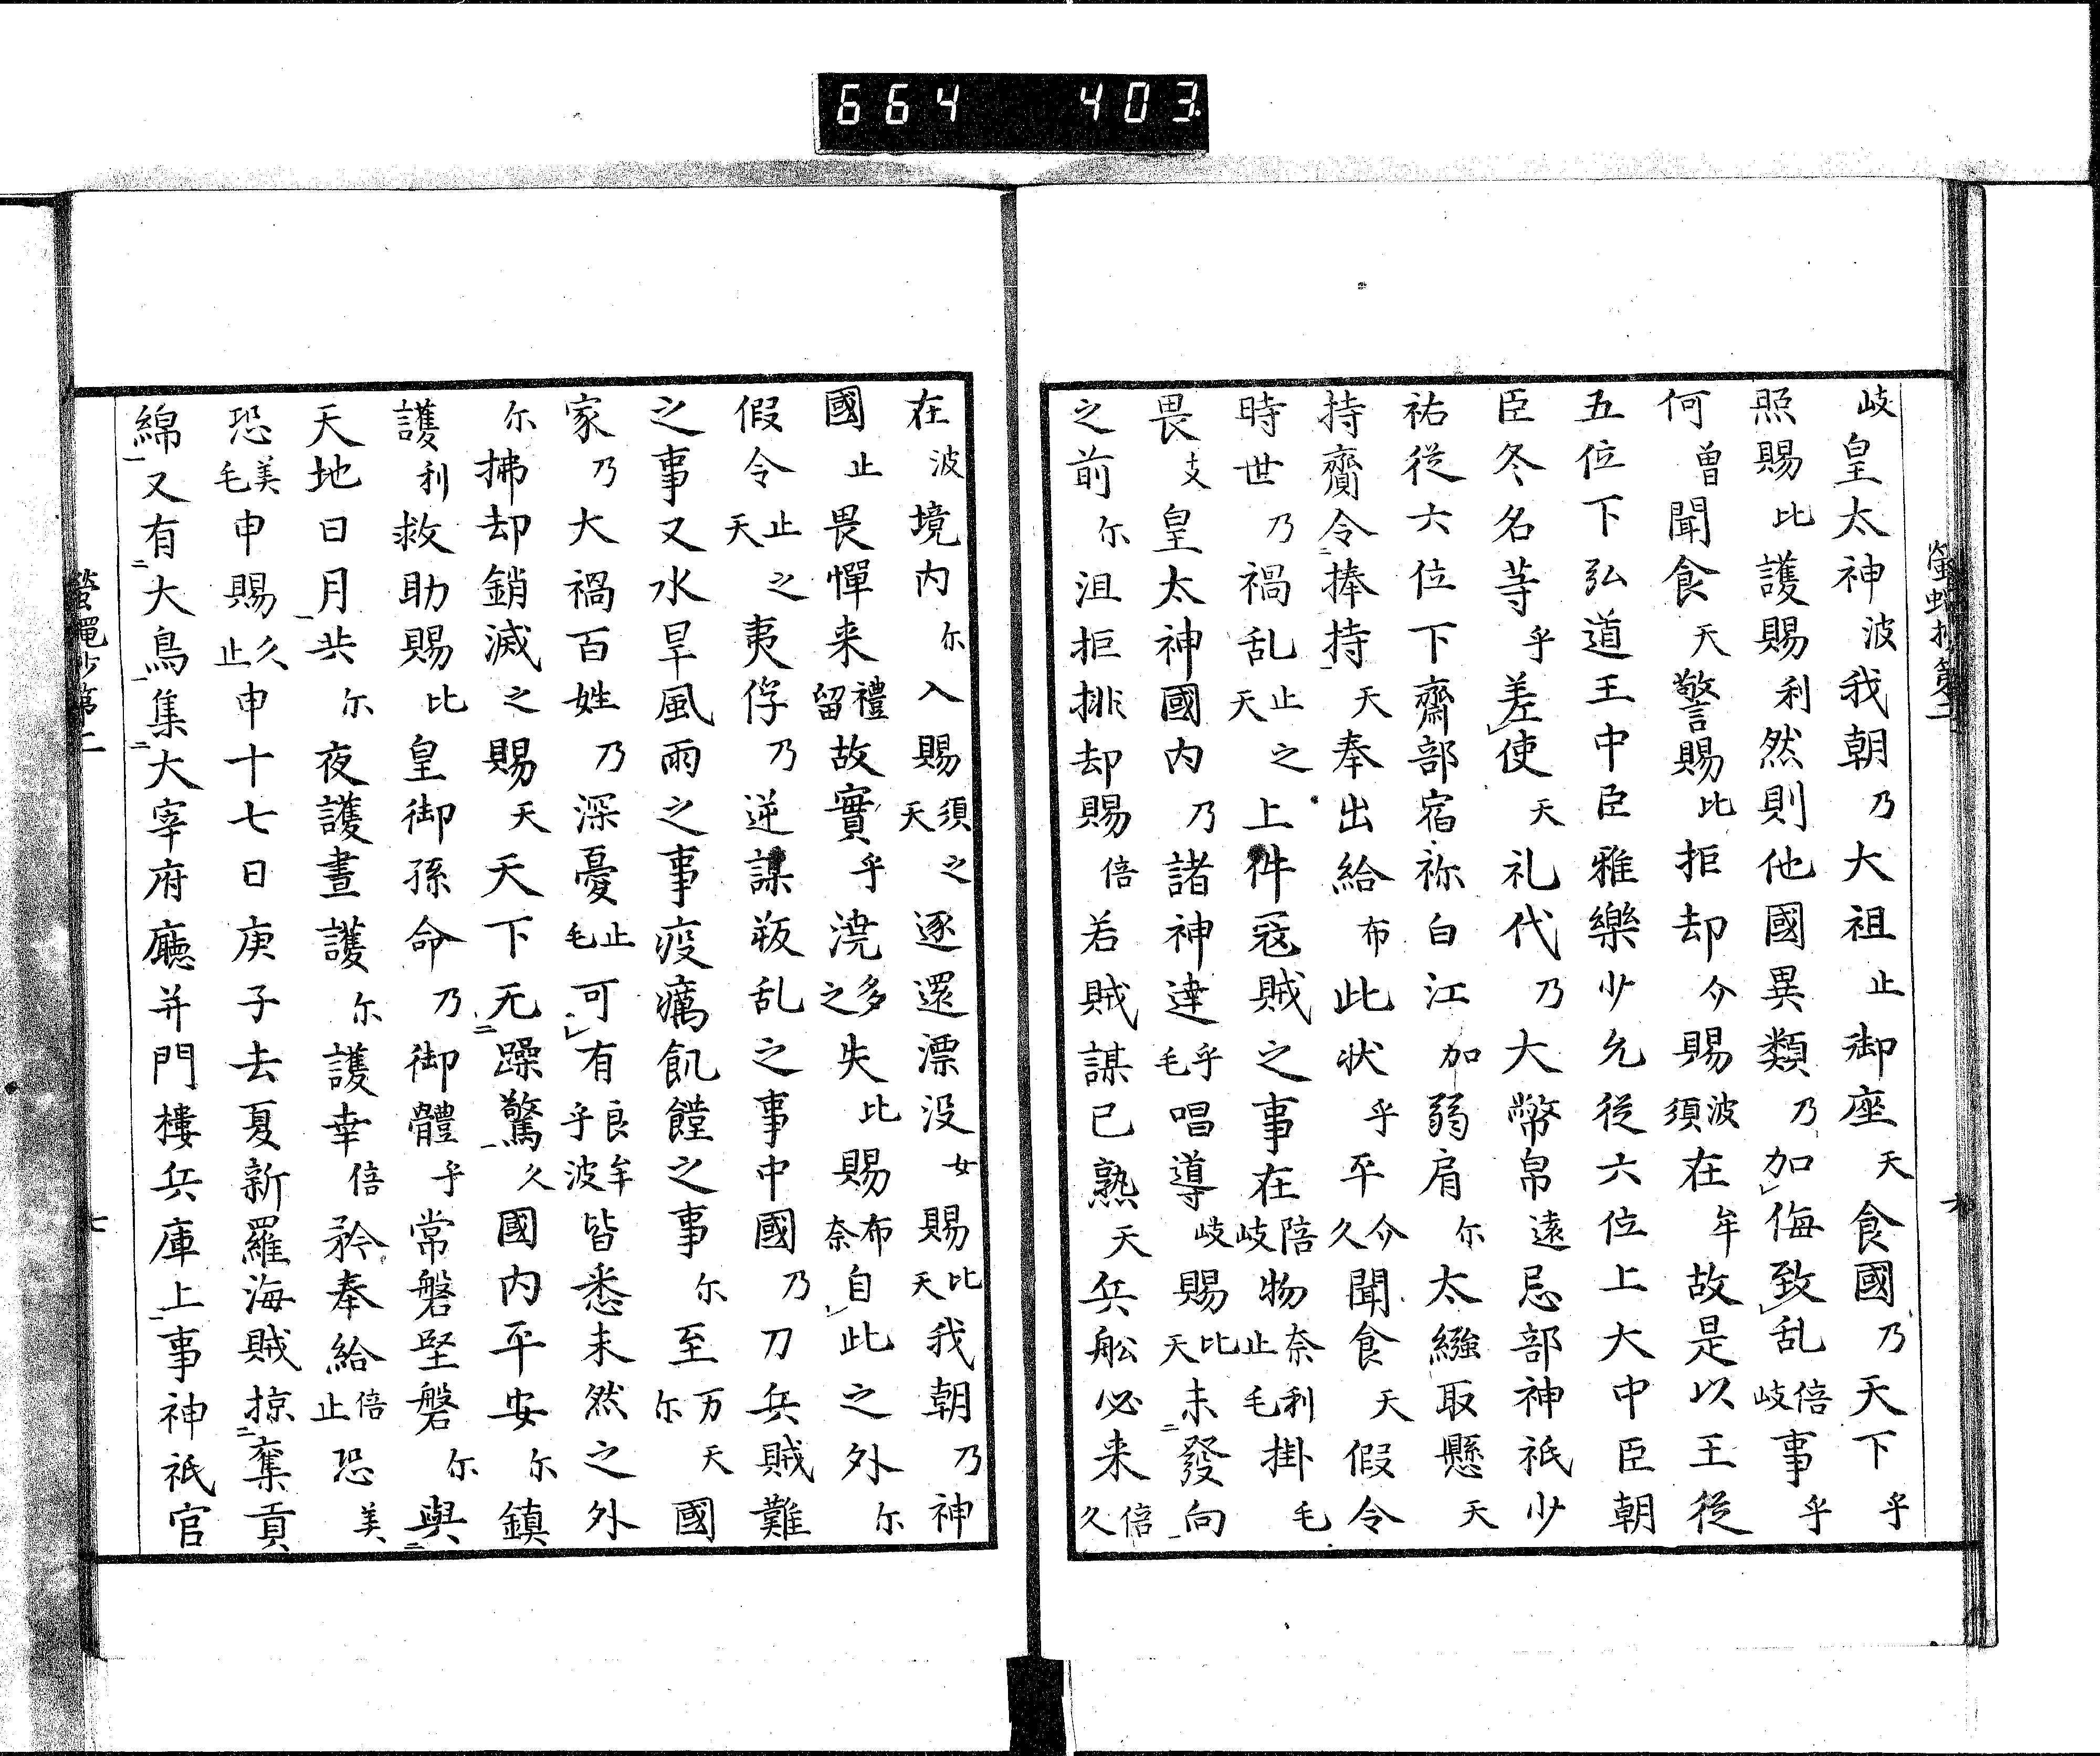 664 403
岐皇太神波我朝乃大祖止御座天食國乃天下乎
照賜比護賜利然則他國異類乃加侮致乱倍岐事乎
何曽聞食天警賜比拒却介賜波須在牟故是以王從
五位下弘道王中臣雅樂少允從六位上大中臣朝
臣冬名等乎差使天礼代乃大幣帛遠忌部神祇少
祐從六位下齋部宿祢白江加弱肩尓太繦取懸天
持齎令捧持天奉出給布此状乎平介久聞食天假令
時世乃禍乱止之天上件寇賊之事在倍岐物奈利止毛掛毛
畏支皇太神國内乃諸神達乎毛唱導岐賜比天未發向
之前尓沮拒排却賜倍若賊謀已熟天兵舩必来倍久
在波境内尓入賜須之天逐還漂没女賜比天我朝乃神
國止畏憚来禮留故實乎澆多之失比賜布奈自此之外尓
假令止之天夷俘乃逆謀叛乱之事中國乃刀兵賊難
之事又水旱風雨之事疫癘飢饉之事尓至万天尓國
家乃大禍百姓乃深憂止毛可有良牟乎波皆悉未然之外
尓拂却銷滅之賜天天下无躁驚久國内平安尓鎮
護利救助賜比皇御孫命乃御體乎常磐堅磐尓與
天地日月共尓夜護晝護尓護幸倍矜奉給倍止恐美
恐美毛申賜久止申十七日庚子去夏新羅海賊掠奪貢
綿又有大鳥集大宰府廳并門樓兵庫上事神祇官
第二
七